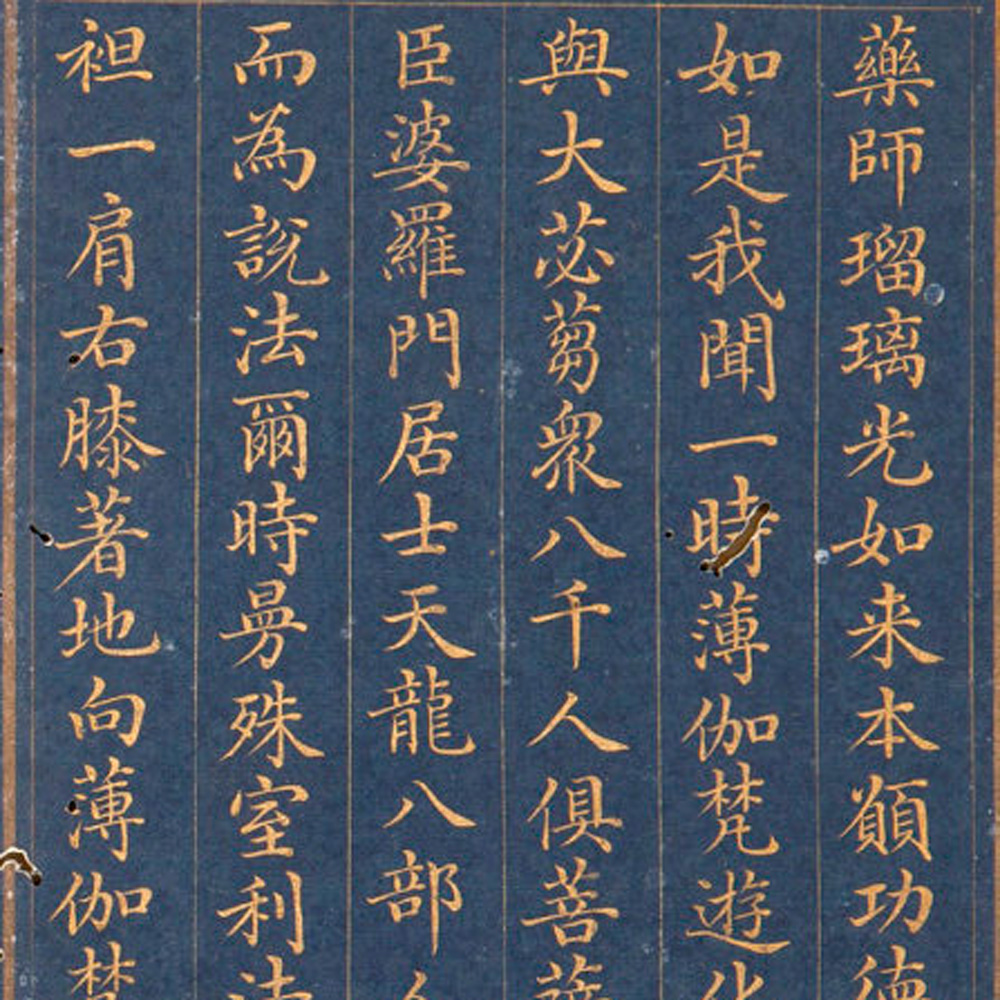 藥師瑠璃光如来本願功徳
如是我聞一時薄伽梵遊化
與大苾蒭衆八千人俱菩薩
臣婆羅門居士天龍八部人
而為說法爾時曼殊室利法
袒一肩右膝著地向薄伽梵